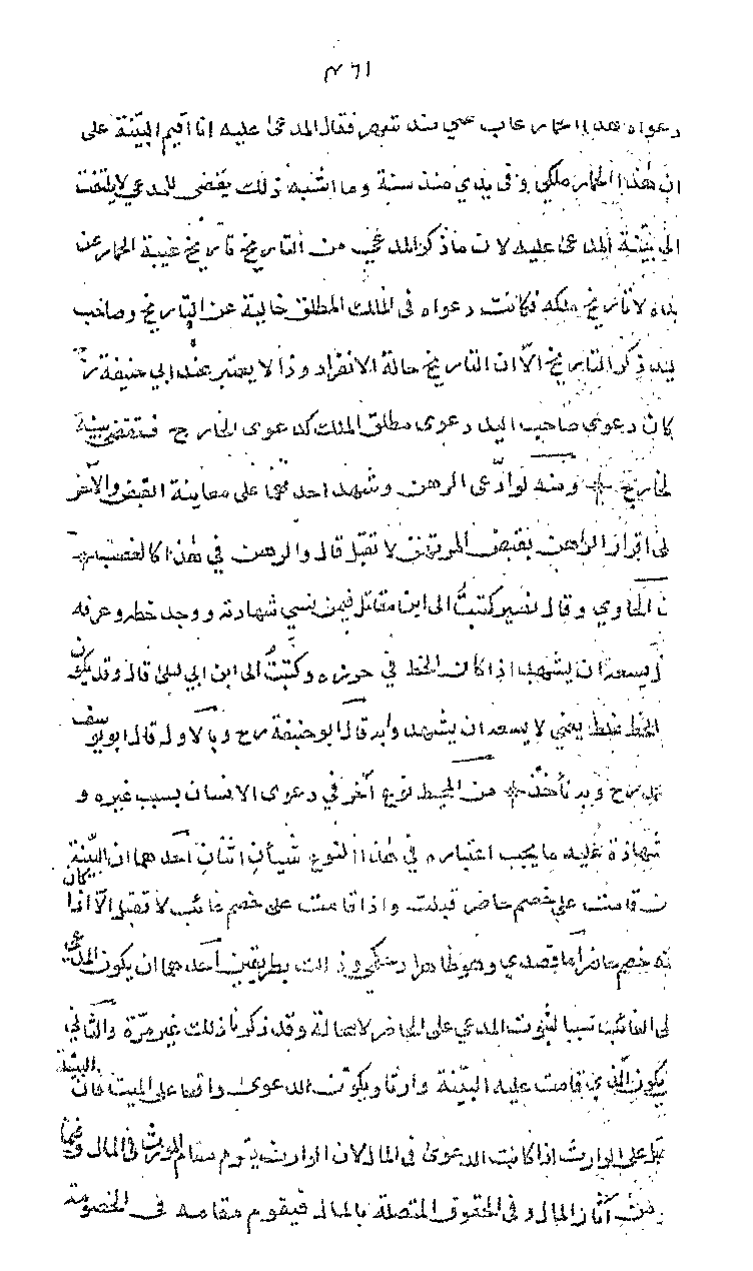 ٣٦١
دعواه هذا الحمار غاب عني منذ شهر فقال المدعى عليه انا اقيم البيّنة على
ان هذا الحمار ملكي وفي يدي منذ سنة وما اشبه ذلك يقضى للمدعي لا يلتفت
الى بيّنة المدعى عليه لان ما ذكر المدعي من التاريخ تاريخ غيبة الحمار عن
يده لا تاريخ ملكه فكانت دعواه في الملك المطلق خالية عن التاريخ وصاحب
اليد ذكر التاريخ الاّ ان التاريخ حالة الانفراد وذا لا يعتبر عند ابي حنيفة رح
كان دعوى صاحب اليد دعوى مطلق الملك كدعوى الخارج فتقضى ببينة
لخارج ومنه لو ادّعى الرهن وشهد احدهما على معاينة القبض والآخر
على اقرار الراهن بقبض المرتهن لا تقبل قال والرهن في هذا كالغصب
ن الحاوي وقال نصير كتبتُ الى ابن مقاتل فيمن نسي شهادته ووجد خطه وعرفه
ل يسعه ان يشهد اذا كان الخط في حوزه وكتبتُ الى ابن ابي ليلى قال وقد يكون
الخط يعني لا يسعه ان يشهد وبه قال ابو حنيفة رح وبالاول قال ابو يوسف
رح وبه نأخذ من المحيط نوع آخر في دعوى الانسان بسبب غيره و
شهادة عليه ما يجب اعتباره في هذا النوع شيأن اثنان احدهما ان البيّنة
ن قامت على خصم حاضر قبلت واذا قامت على خصم غائب لا تقبل الاّ اذا كان
نه خصم حاضر اما قصدي وهو ظاهر او حكمي وذلك بطريقين احدهما ان يكون المدعى
لى الغائب سببا لثبوت المدعي على الحاضر لا محالة وقد ذكرنا ذلك غير مرّة والثاني
يكون الّذي قامت عليه البيّنة وارثا ويكون الدعوى واقعا على الميت فان البيّنة
تقبل على الوارث اذا كانت الدعوى في المال لان الوارث يقوم مقام المورث في المال وفيما
من آثار المال وفي الحقوق المتصلة بالمال فيقوم مقامه في الخصومة